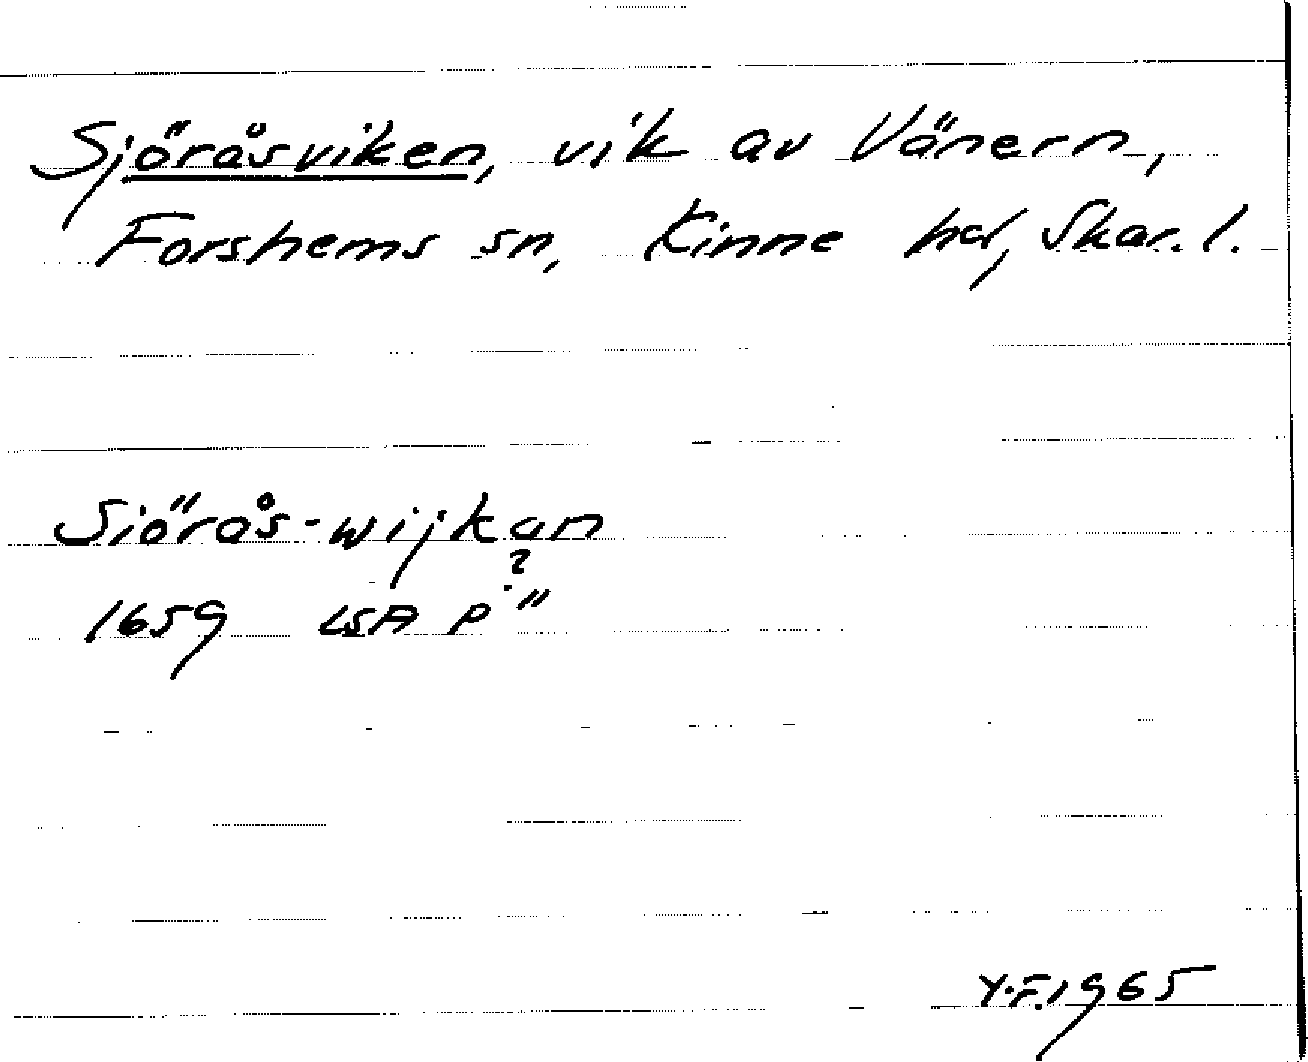 Sjöråsviken, vik av Vänern,
Forshems sn, Kinne hd, Skar. l.
Siörås-wijkan
?
1659 LSA P 11
Y.F. 1965